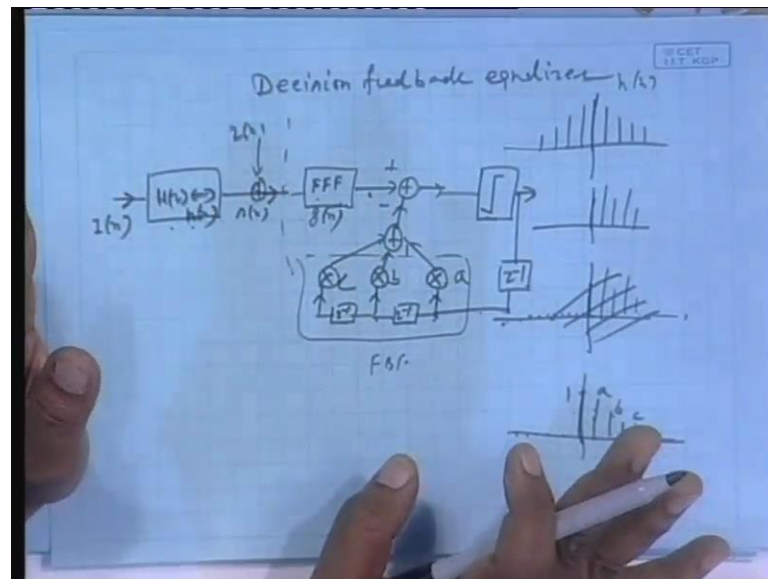 © CET
I.I.T. KGP
Decision feedback equalizer
h(n)
z(n)
+
FFF
-
H(z) ↔
h(n)
I(n)
g(n)
z-1
c
b
a
z-1
z-1
FBF
1
a
b
c